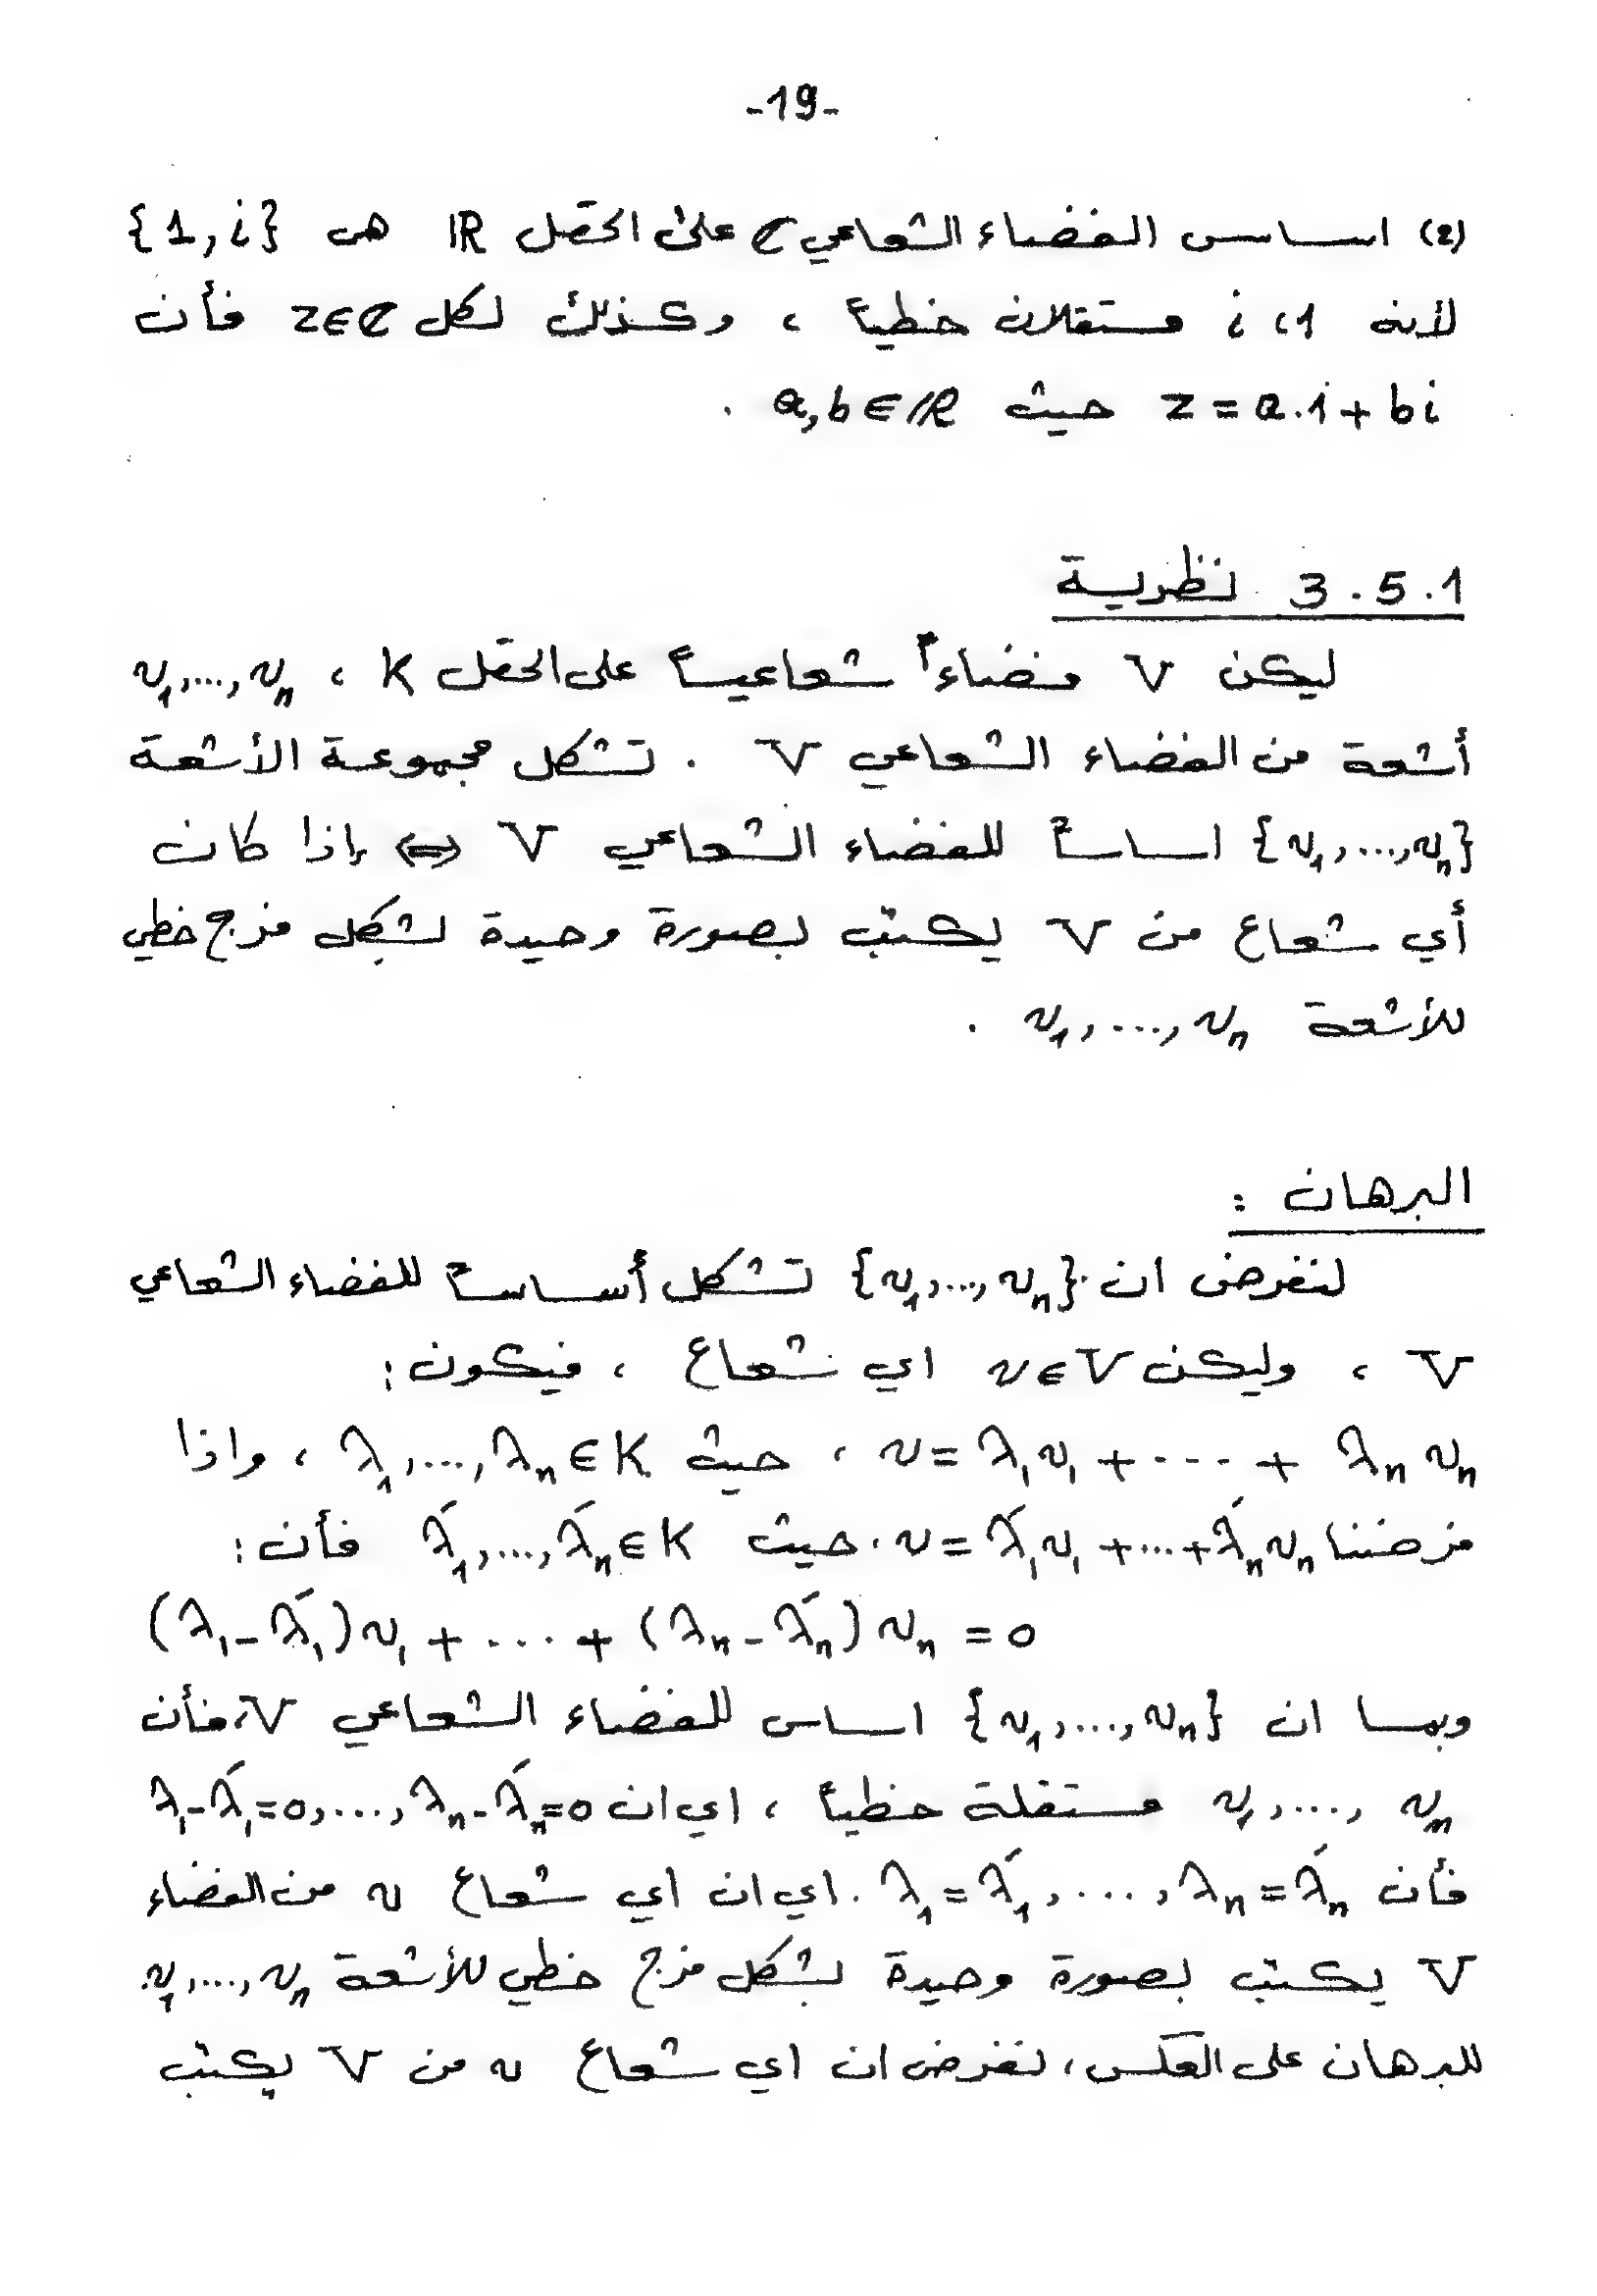 -19-
(2) اساس الفضاء الشعاعي ℂ على الحقل ℝ هي {1, i}
لأنه 1، i مستقلان خطياً ، وكذلك لكل z∈ℂ فأن
z = a.1 + bi حيث a, b ∈ ℝ .
3.5.1 نظرية
ليكن V فضاءاً شعاعياً على الحقل K ، v₁,...,vₙ
أشعة من الفضاء الشعاعي V . تشكل مجموعة الأشعة
{v₁,...,vₙ} اساساً للفضاء الشعاعي V ⇔ إذا كان
أي شعاع من V يكتب بصورة وحيدة بشكل مزج خطي
للأشعة v₁,...,vₙ .
البرهان :
لنفرض ان {v₁,...,vₙ} تشكل أساساً للفضاء الشعاعي
V ، وليكن v∈V اي شعاع ، فيكون :
v = λ₁v₁ + ---- + λₙvₙ ، حيث λ₁,...,λₙ ∈ K ، واذا
فرضنا v = λ́₁v₁ + ... + λ́ₙvₙ . حيث λ́₁,...,λ́ₙ ∈ K فأن :
(λ₁ - λ́₁)v₁ + ... + (λₙ - λ́ₙ)vₙ = 0
وبما ان {v₁,...,vₙ} اساس للفضاء الشعاعي V، فأن
v₁,...,vₙ مستقلة خطياً ، اي ان λ₁-λ́₁=0,...,λₙ-λ́ₙ=0
فأن λ₁=λ́₁,...,λₙ=λ́ₙ . اي ان اي شعاع v من الفضاء
V يكتب بصورة وحيدة بشكل مزج خطي للأشعة v₁,...,vₙ.
للبرهان على العكس، نفرض ان اي شعاع v من V يكتب